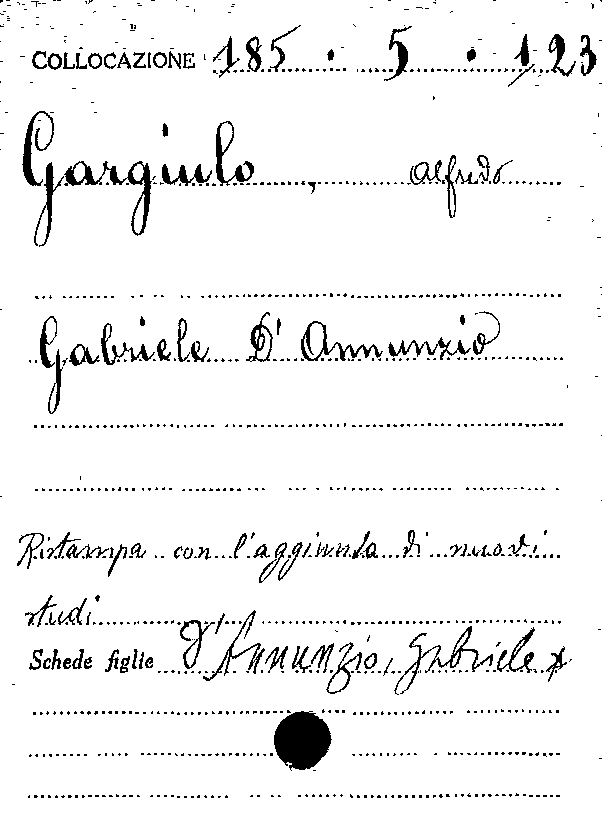 COLLOCAZIONE 185 . 5 . 123
Gargiulo, Alfredo
Gabriele D'Annunzio
Ristampa con l'aggiunta di nuovi
studi
Schede figlie D'Annunzio, Gabriele x